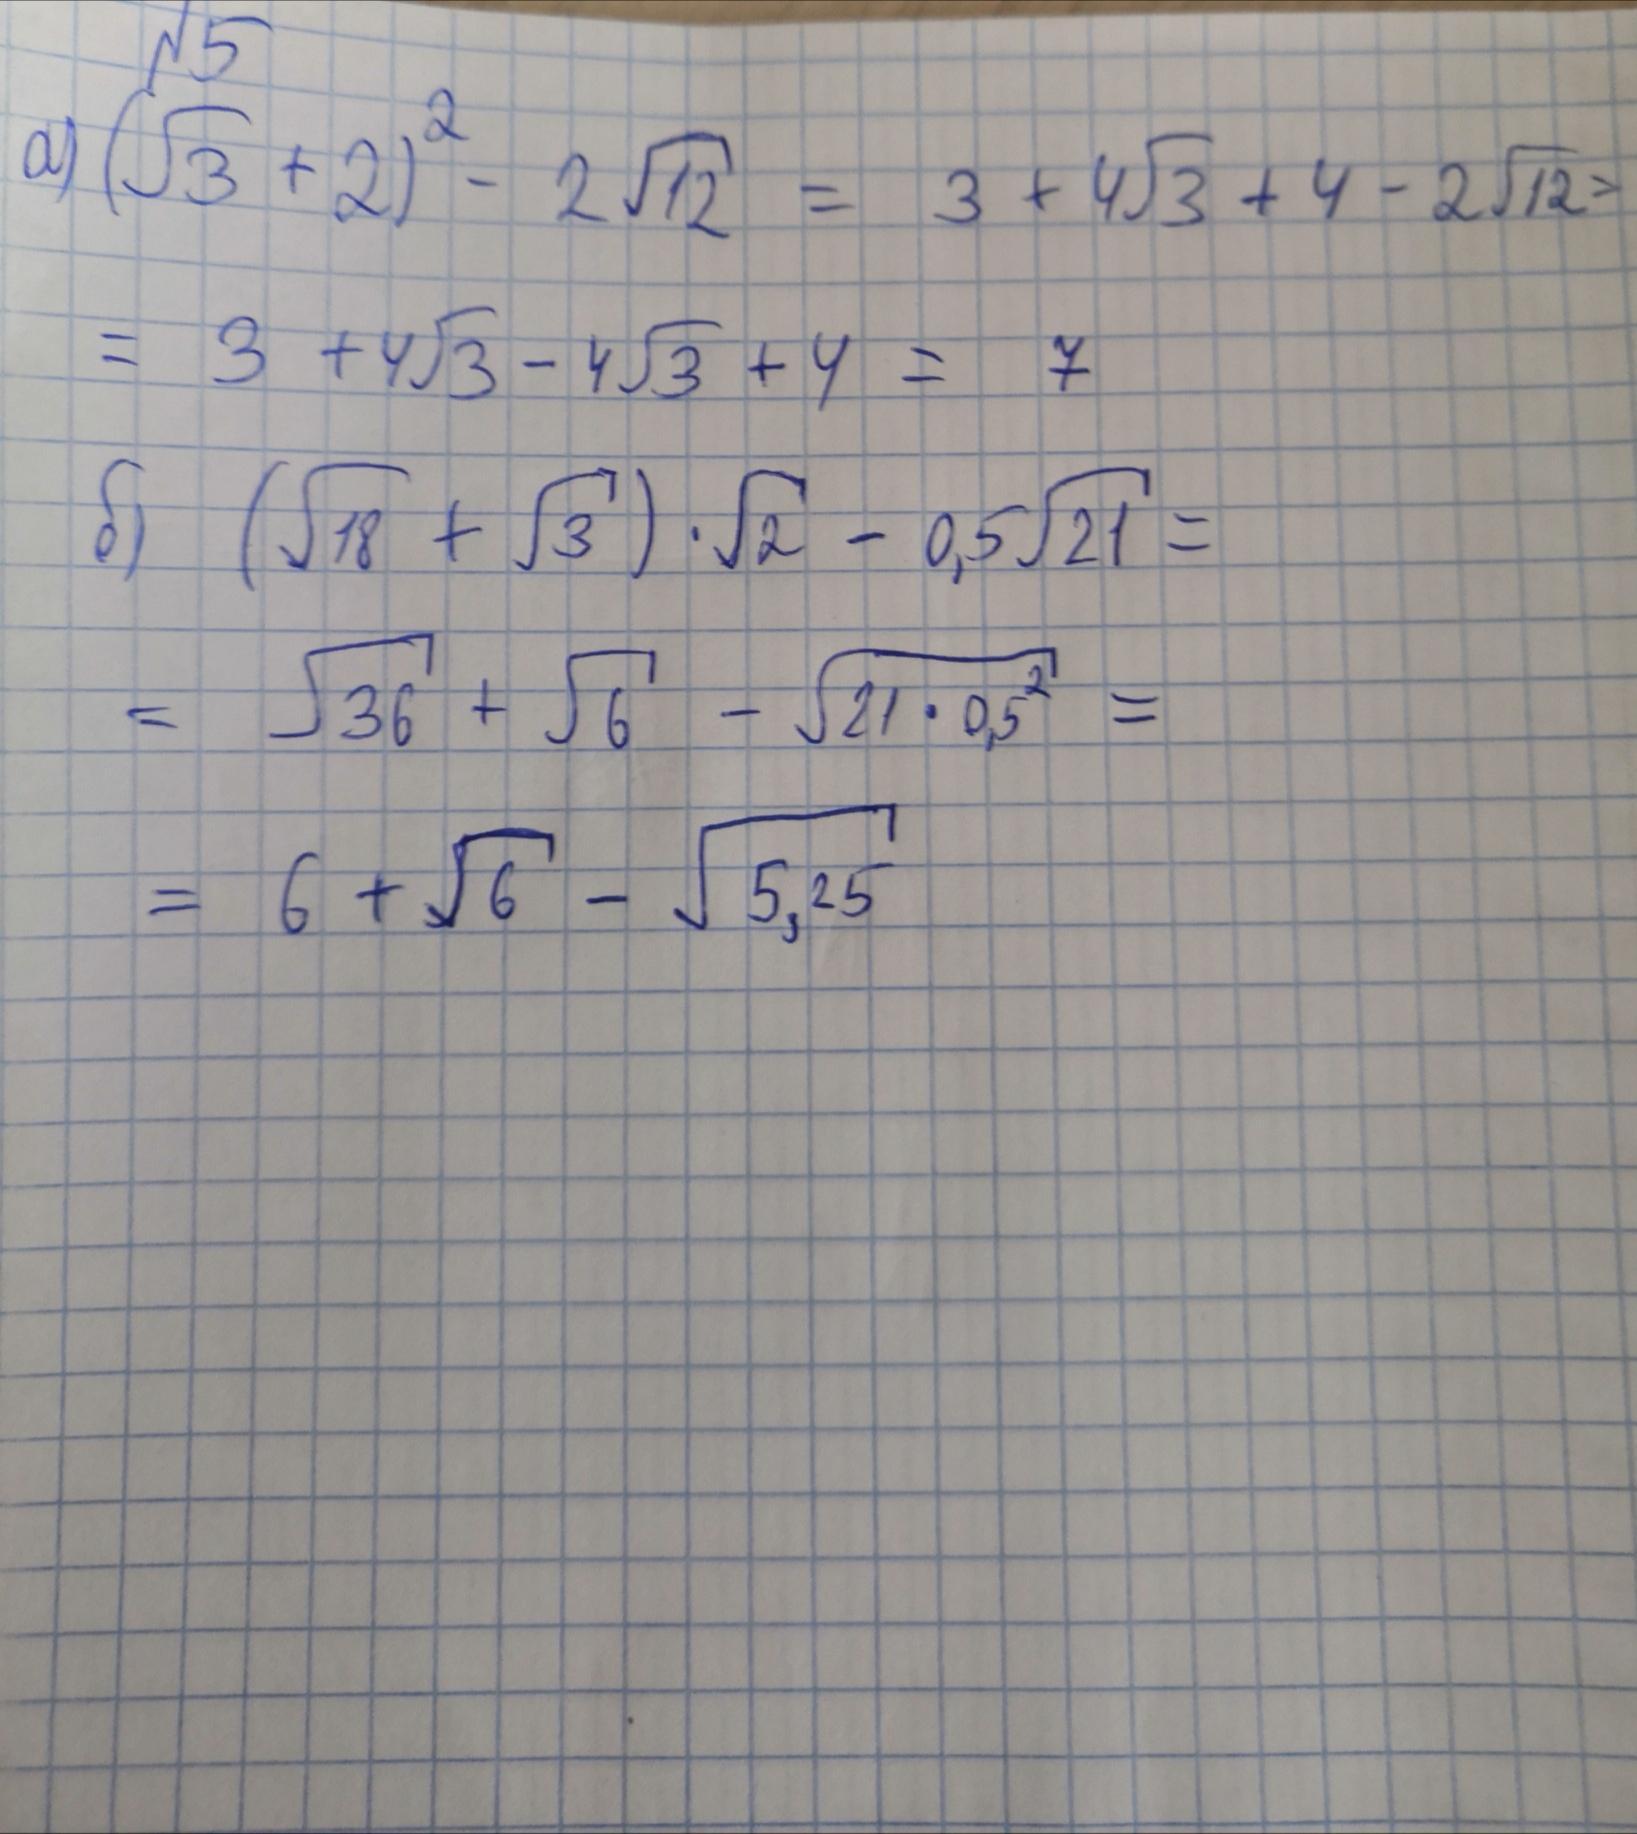 №5
а) (√3 + 2)² - 2√12 = 3 + 4√3 + 4 - 2√12 =
= 3 + 4√3 - 4√3 + 4 = 7
б) (√18 + √3) · √2 - 0,5√21 =
= √36 + √6 - √21 · 0,5² =
= 6 + √6 - √5,25